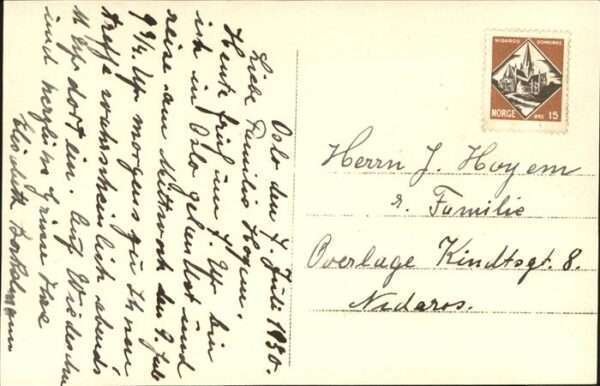 Oslo den 7. Juli 1930.
Liebe Familie Hoyem.
Heute früh um 7 Uhr bin
ich in Oslo gelandet und
reise am Mittwoch den 9. Juli
9 3/4 Uhr morgens zu Ihnen,
treffe wahrscheinlich abends
11 Uhr dort ein. Auf Wiedersehn
und herzliche Grüsse Ihre
NIDAROS DOMKIRKE
NORGE ØRE 15
Herrn J. Hoyem
u. Familie
Overlage Kindtsgt. 8.
Nidaros.